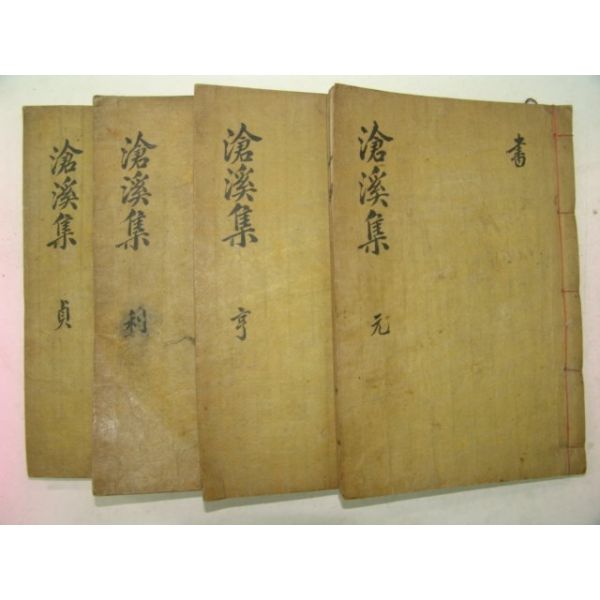 滄溪集 元
書
滄溪集 亨
滄溪集 利
滄溪集 貞